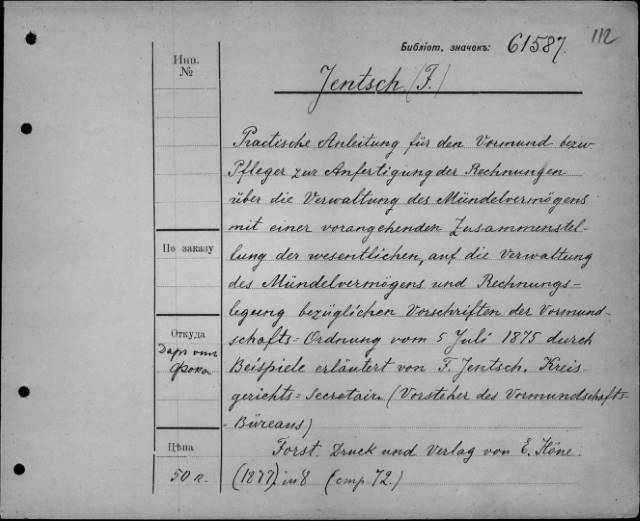 Библіот. значекъ: 61587.
112
Инв. №
Jentsch (F.)
Practische Anleitung für den Vormund bezw.
Pfleger zur Anfertigung der Rechnungen
über die Verwaltung des Mündelvermögens
mit einer vorangehenden Zusammenstel-
lung der wesentlichen, auf die Verwaltung
des Mündelvermögens und Rechnungs=
legung bezüglichen Vorschriften der Vormund-
schafts=Ordnung vom 5 Juli 1875 durch
Beispiele erläutert von F. Jentsch. Kreis-
gerichts=Secretair (Vorsteher des Vormundschafts-
-Büreaus)
Forst. Druck und Verlag von E. Höne
(1877) in 8 (стр. 72.)
По заказу
Откуда
Даръ отъ
Фока
Цѣна
50 к.